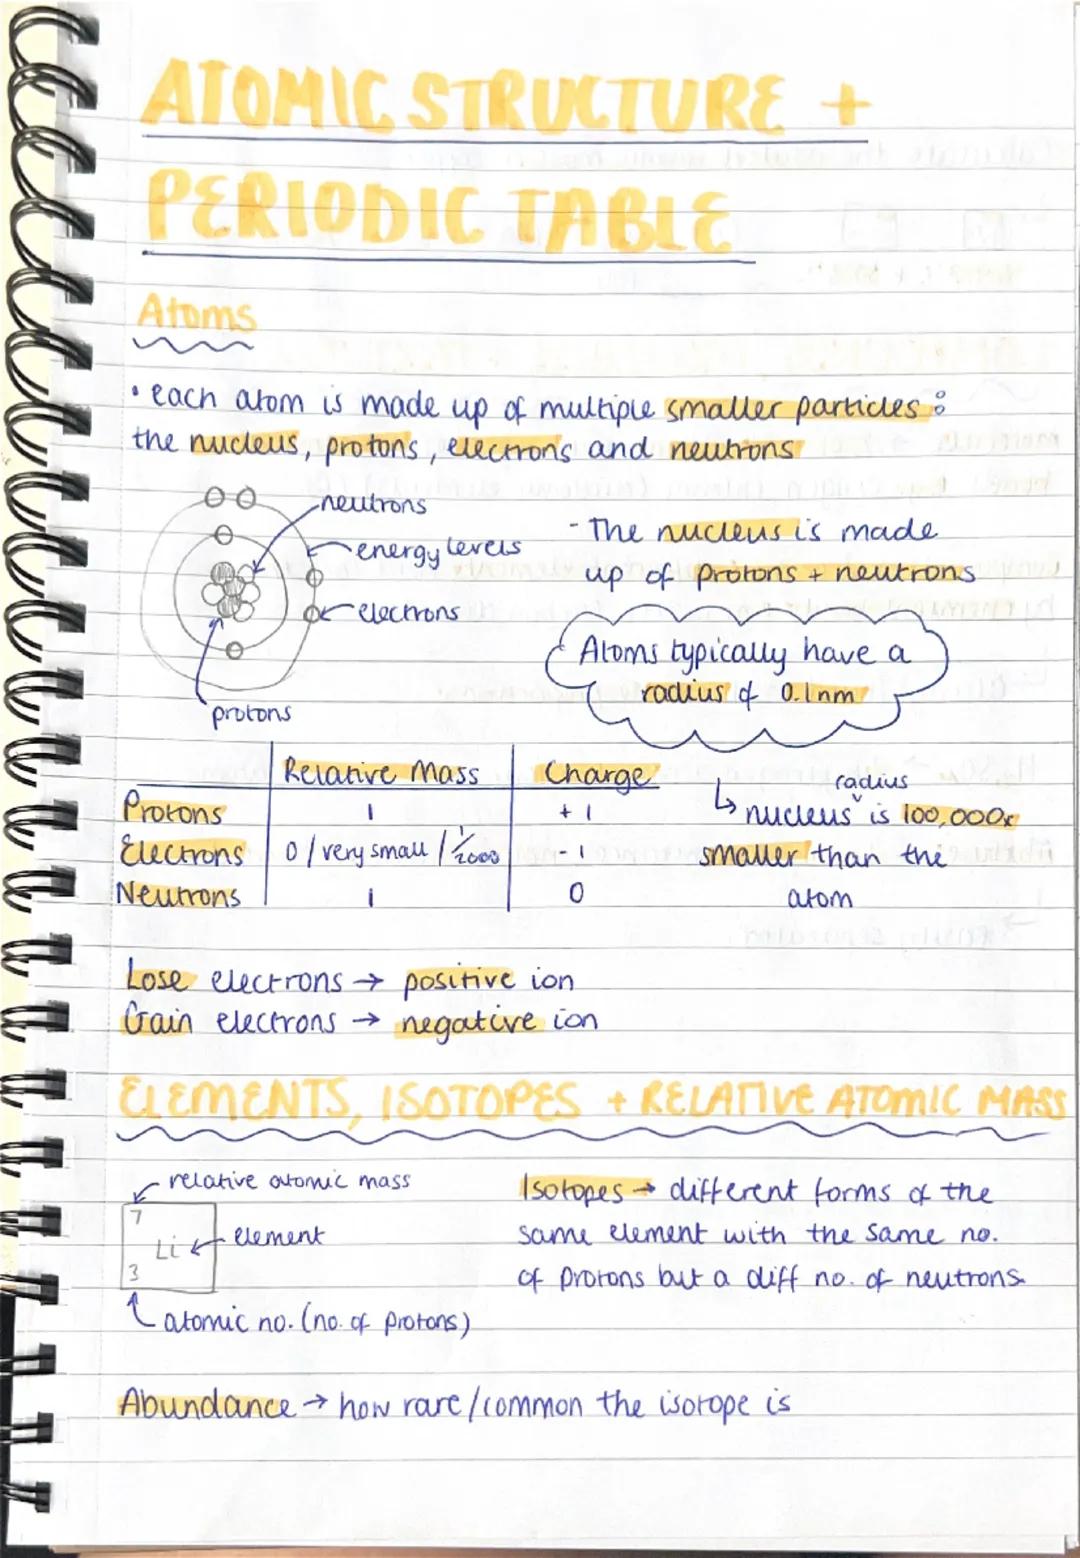 ATOMIC STRUCTURE +
PERIODIC TABLE
Atoms
• each atom is made up of multiple smaller particles:
the nucleus, protons, electrons and neutrons
neutrons
energy levels
electrons
protons
- The nucleus is made
up of protons + neutrons
Atoms typically have a
radius of 0.1nm
Relative Mass Charge
Protons 1 +1
Electrons 0/very small/1/2000 -1
Neutrons 1 0
radius
↳ nucleus ˅ is 100,000x
smaller than the
atom
Lose electrons → positive ion
Gain electrons → negative ion
ELEMENTS, ISOTOPES + RELATIVE ATOMIC MASS
relative atomic mass
7
Li ← element
3
atomic no. (no. of protons)
Isotopes → different forms of the
same element with the same no.
of protons but a diff no. of neutrons.
Abundance → how rare/common the isotope is